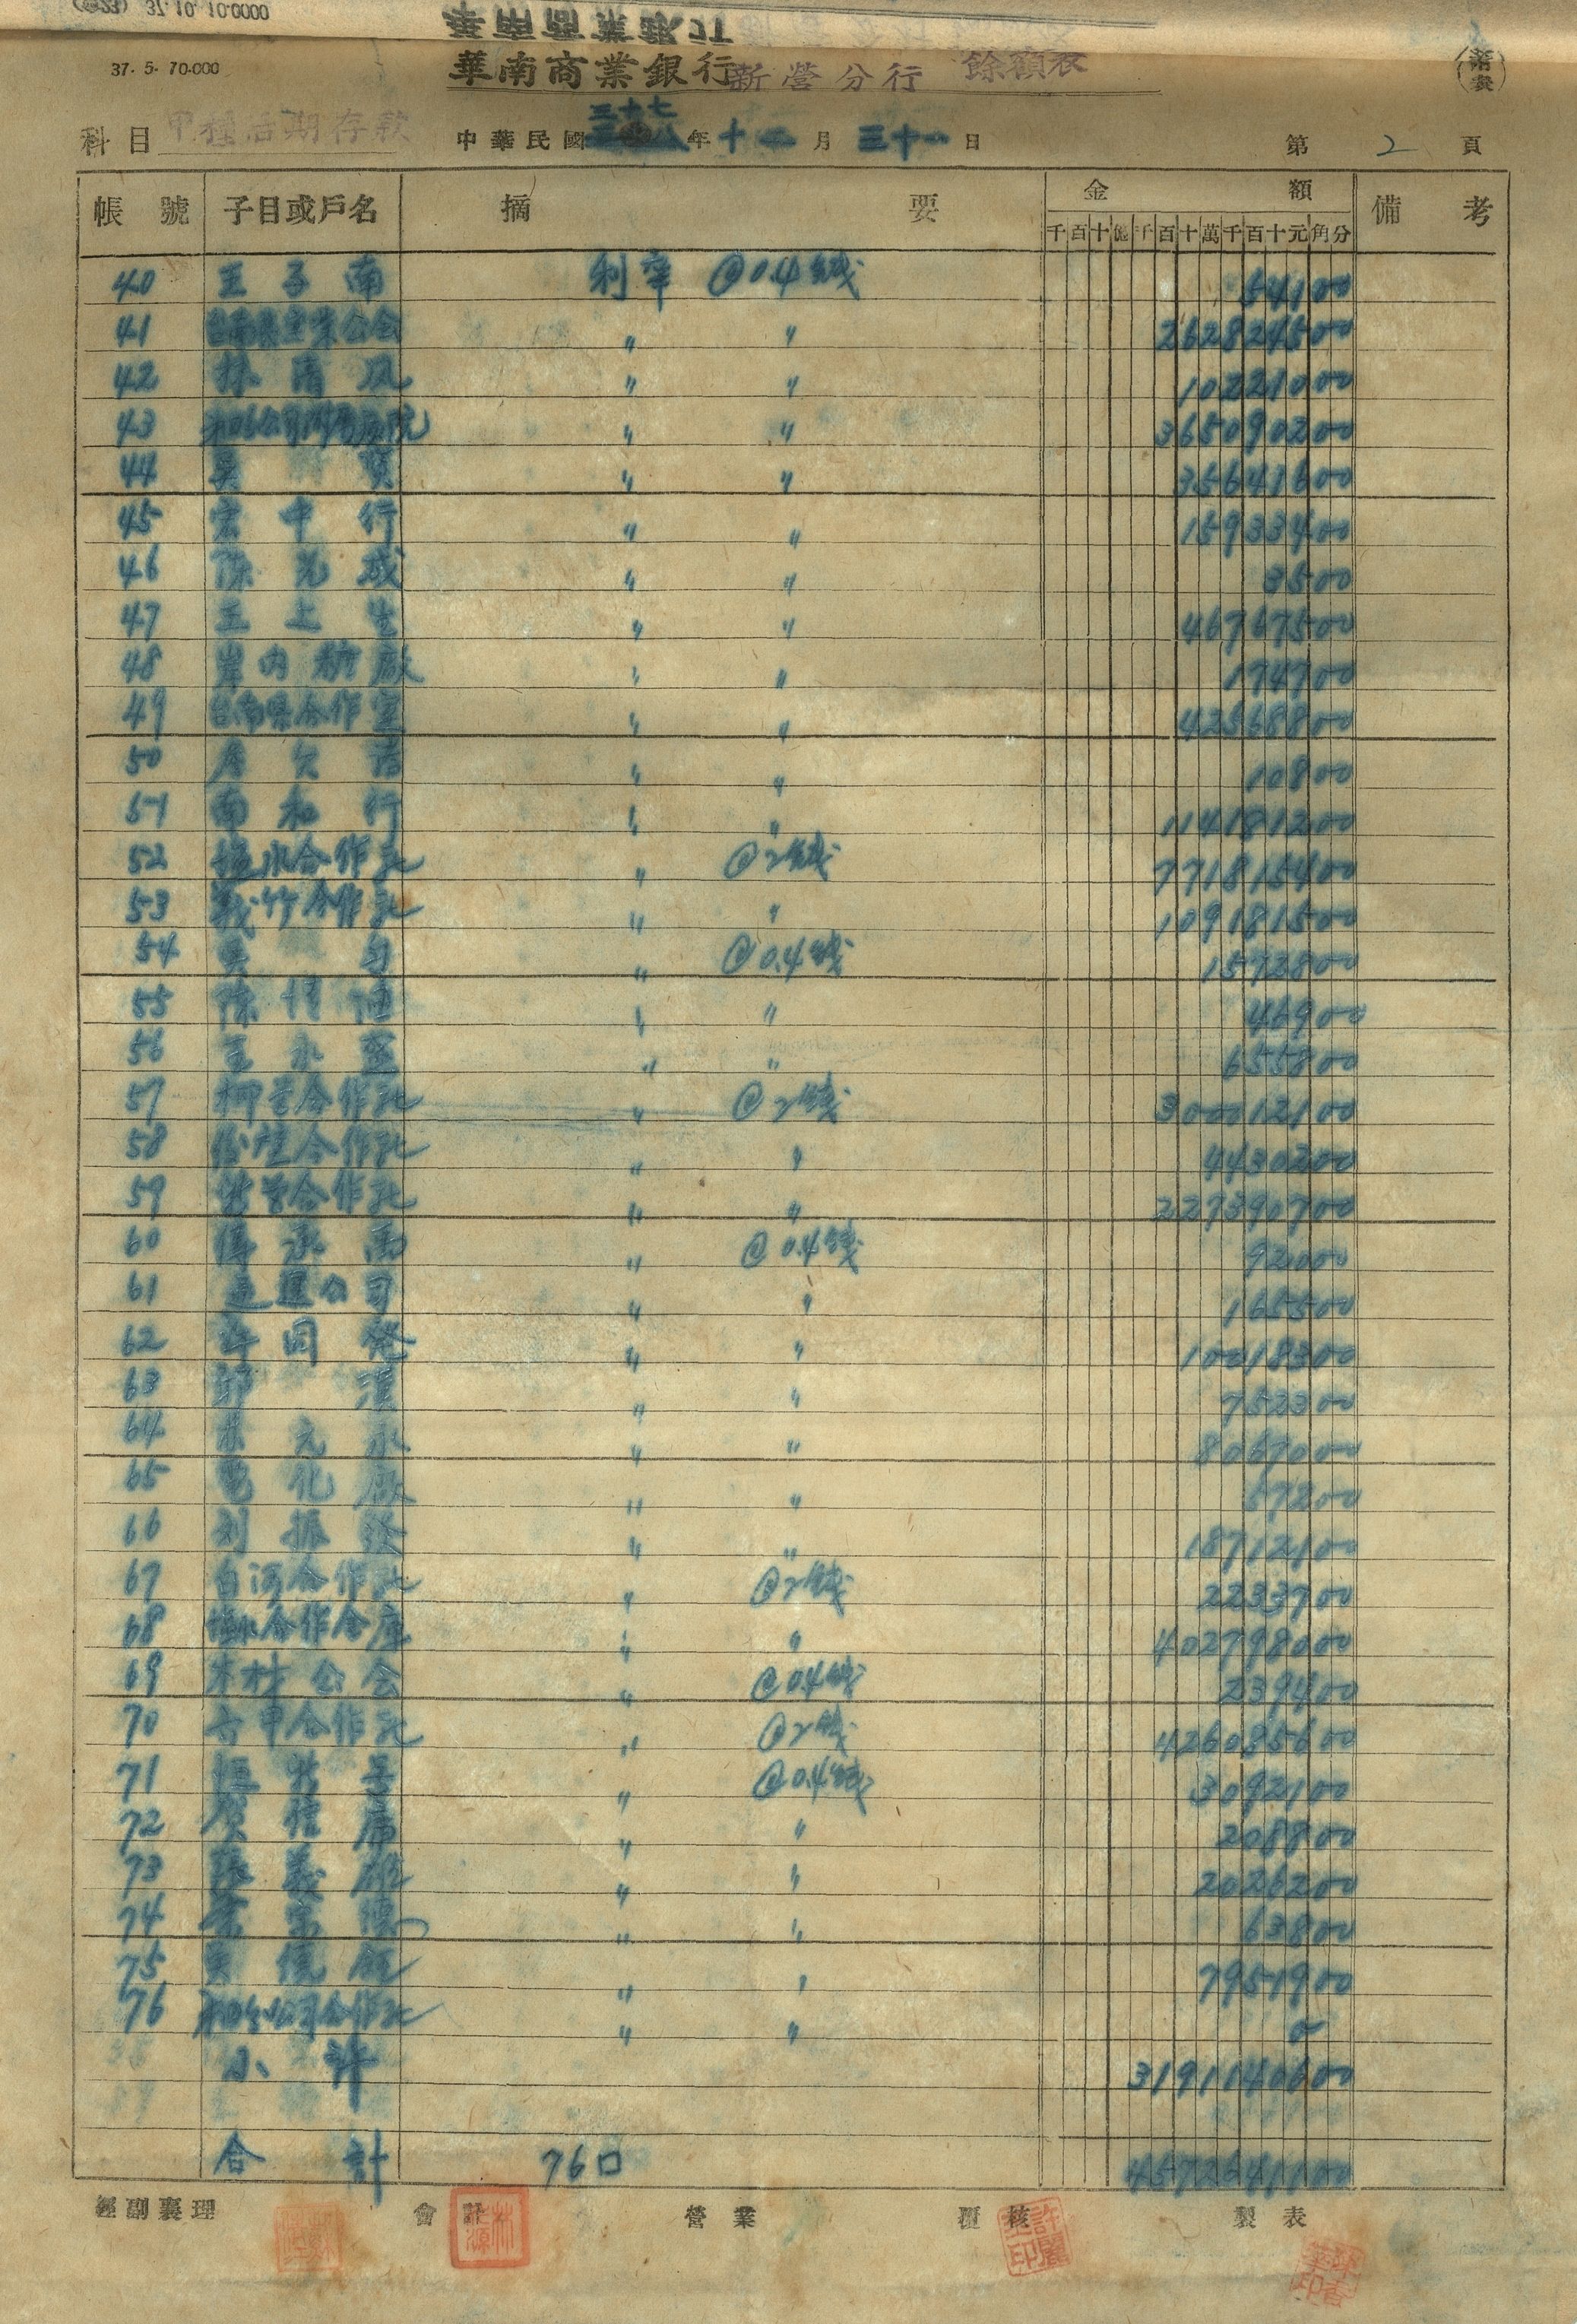 37. 5. 70.000
華南商業銀行新營分行 餘額表
科目 甲種活期存款 中華民國三十七年十二月三十一日 第 2 頁
帳號 子目或戶名 摘要 金額 備考
千百十億千百十萬千百十元角分
40 王子南 利率 @0.4錢 54100
41 公会 〃 〃 262824500
42 林清風 〃 〃 10221000
43 〃 〃 365090200
44 吳 賀 〃 〃 35641600
45 宏中行 〃 〃 15933400
46 陳光成 〃 〃 3500
47 王上生 〃 〃 46767500
48 岸内糖廠 〃 〃 174700
49 台南縣合作室 〃 〃 42568800
50 〃 〃 10800
51 南和行 〃 〃 114181200
52 塩水合作社 〃 @2錢 771815400
53 義竹合作社 〃 〃 109181500
54 吳 〃 @0.4錢 1572800
55 陳 〃 〃 46900
56 王永 〃 〃 655800
57 柳营合作社 〃 @2錢 300012100
58 合作社 〃 〃 4430200
59 新营合作社 〃 〃 227390700
60 〃 @0.4錢 92000
61 通運公司 〃 〃 165500
62 許同發 〃 〃 10018300
63 邱 漢 〃 〃 752300
64 元永 〃 〃 8067000
65 電化廠 〃 〃 57200
66 刘振發 〃 〃 18712100
67 白河合作社 〃 @2錢 2233700
68 塩水合作倉庫 〃 〃 402798000
69 木材公会 〃 @0.4錢 239400
70 六甲合作社 〃 @2錢 426085600
71 恒 号 〃 @0.4錢 3092100
72 信 〃 〃 208800
73 張義雄 〃 〃 2026200
74 葉宗德 〃 〃 63800
75 吳 〃 〃 7951900
76 合作社 〃 〃 0
小計 3191140600
合計 76口 4572641100
經副襄理 會計 營業 覆核 製表